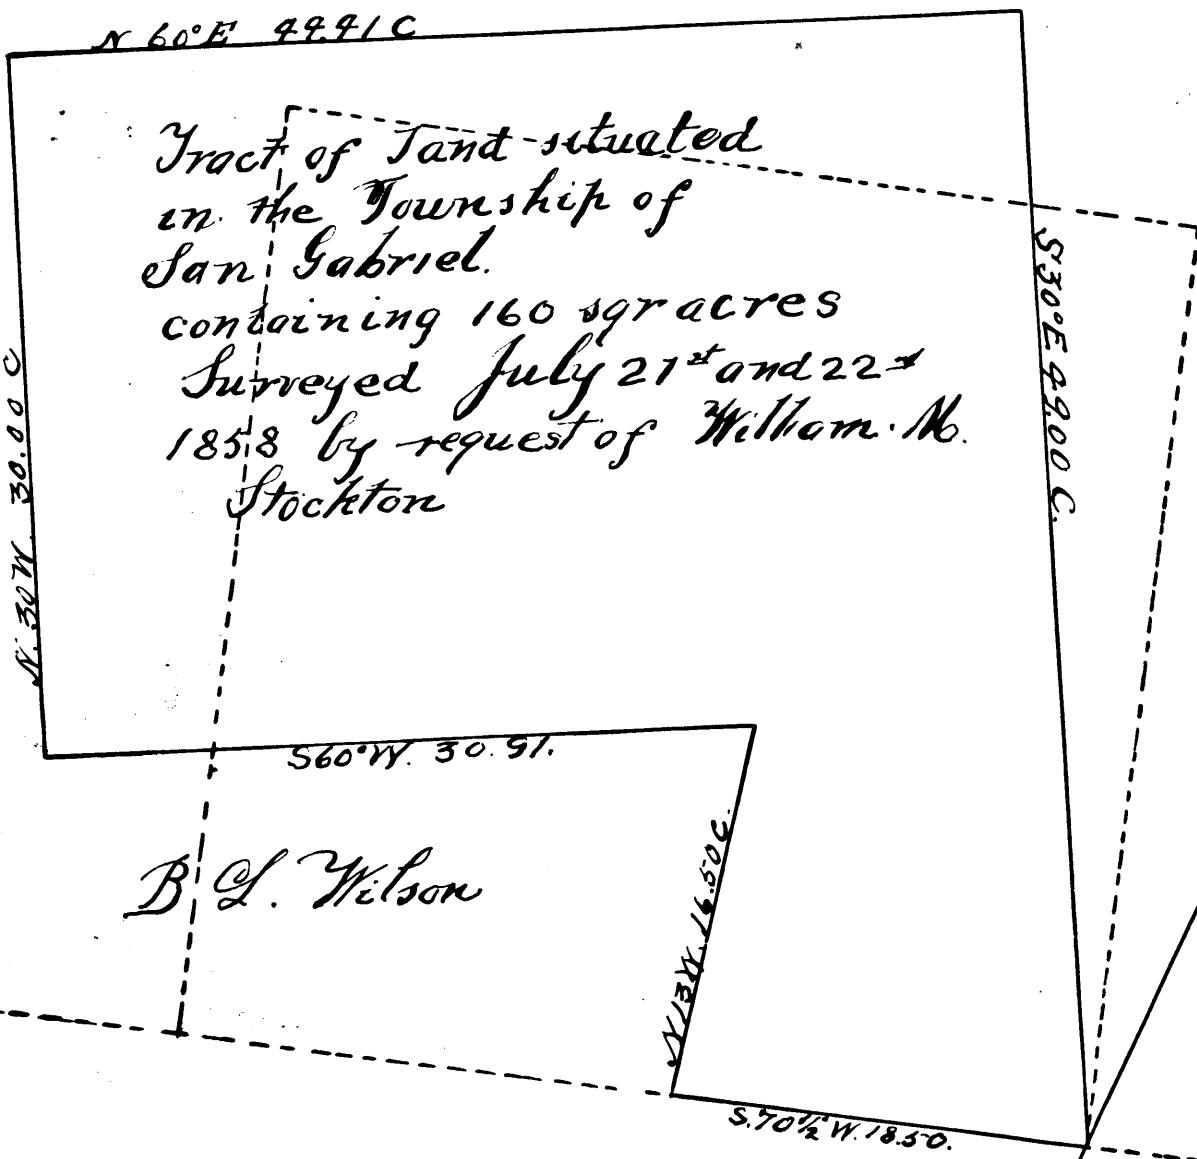 N 60° E 44.41 C
Tract of Land situated
in the Township of
San Gabriel.
containing 160 sqr acres
Surveyed July 21st and 22d
1858 by request of William. M.
Stockton
S 30° E 49.00 C.
N. 30 W. 30.00 C
S 60° W. 30.91.
B Wilson
N 13 W. 16.50 C.
S. 70 1/2° W. 18.50.